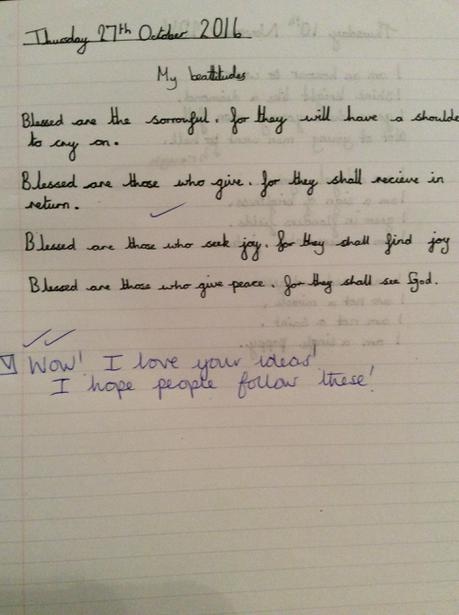 Thursday 27th October 2016
My beattitudes
Blessed are the sorrowful. for they will have a shoulde
to cry on.
Blessed are those who give. for they shall recieve in
return.
Blessed are those who seek joy. for they shall find joy
Blessed are those who give peace. for they shall see God.
V Wow! I love your ideas!
I hope people follow these!